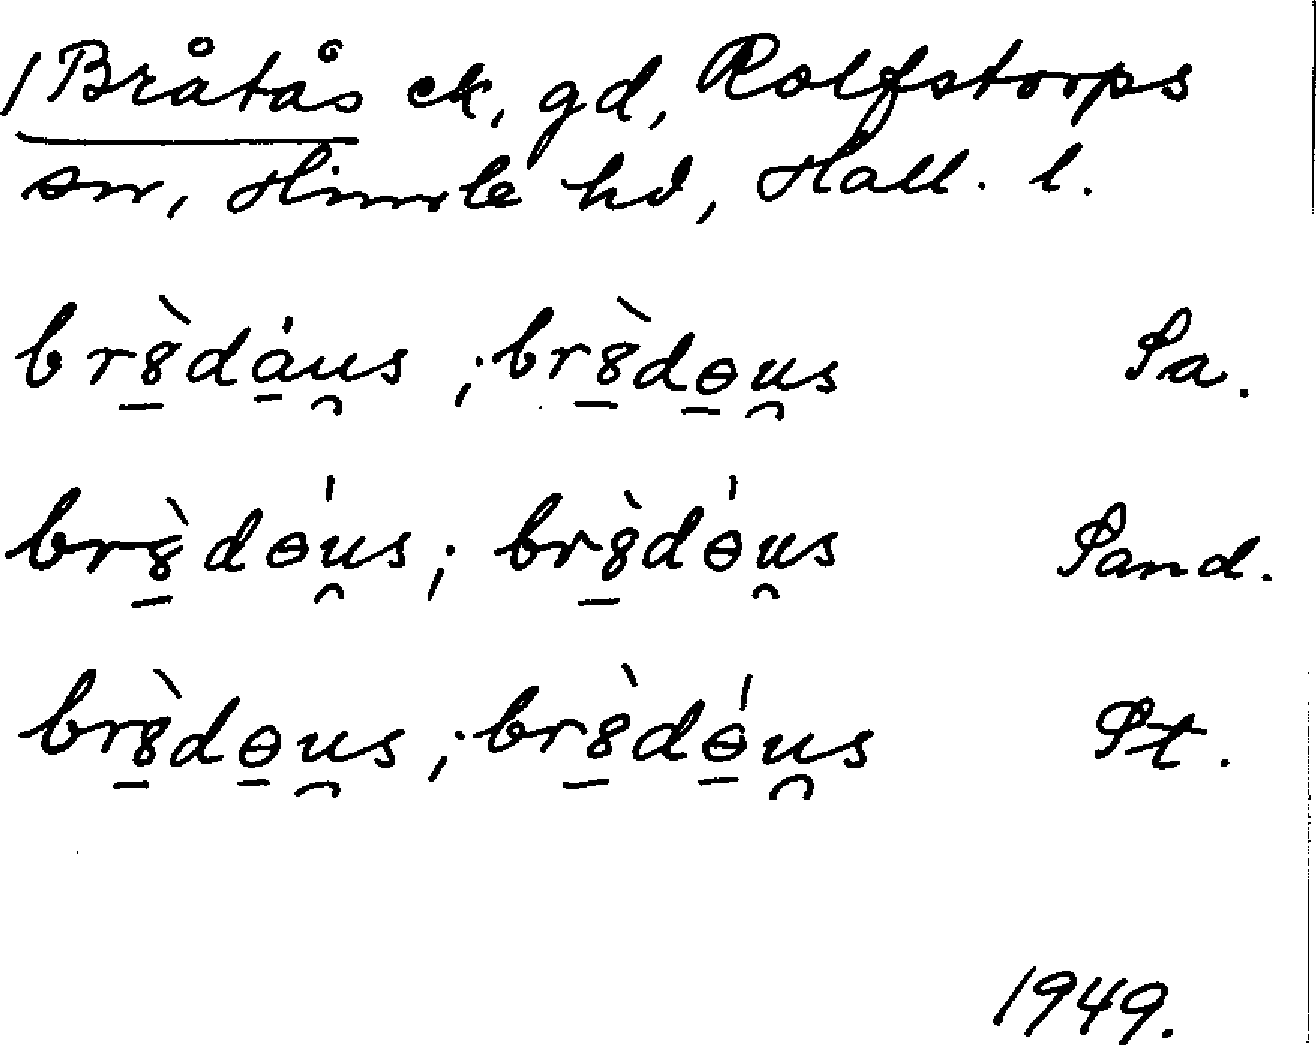 /Bråtås ek, gd, Rolfstorps
sn, Himle hd, Hall. l.
br8̱̀da̱̍u̯s ; br8̱̀dɵ̱u̯s Pa.
br8̱̀dɵ̍u̯s ; br8̱̀dɵ̍u̯s Pand.
br8̱̀dɵ̱u̯s ; br8̱̀dɵ̱̍u̯s Pt.
1949.